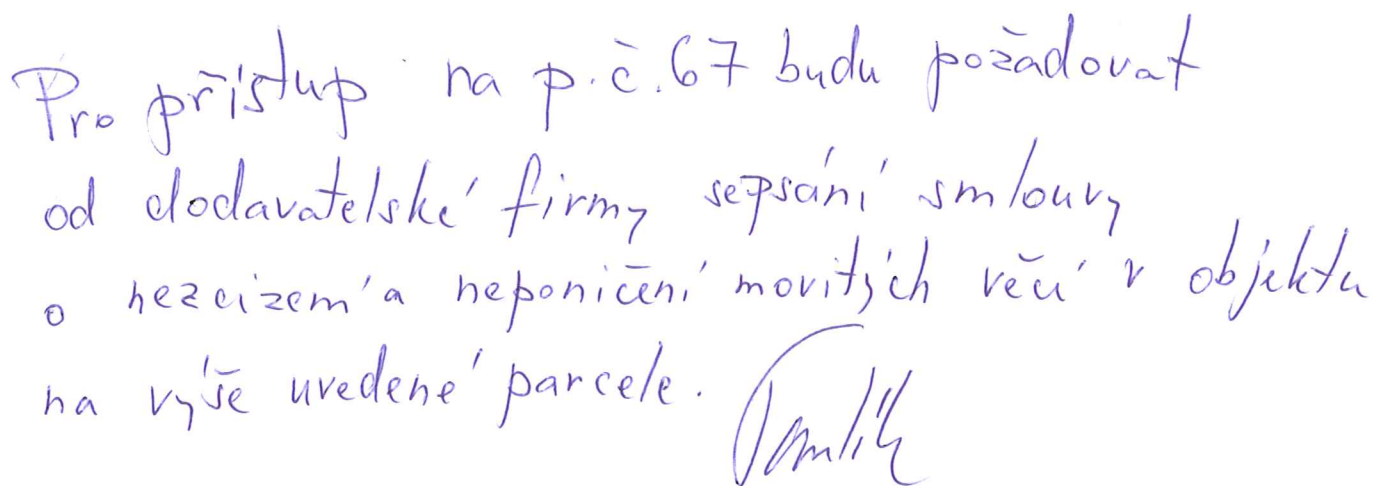 Pro přístup na p.č.67 budu požadovat
od dodavatelské firmy sepsání smlouvy
o nezcizení a neponičení movitých věcí v objektu
na výše uvedené parcele.